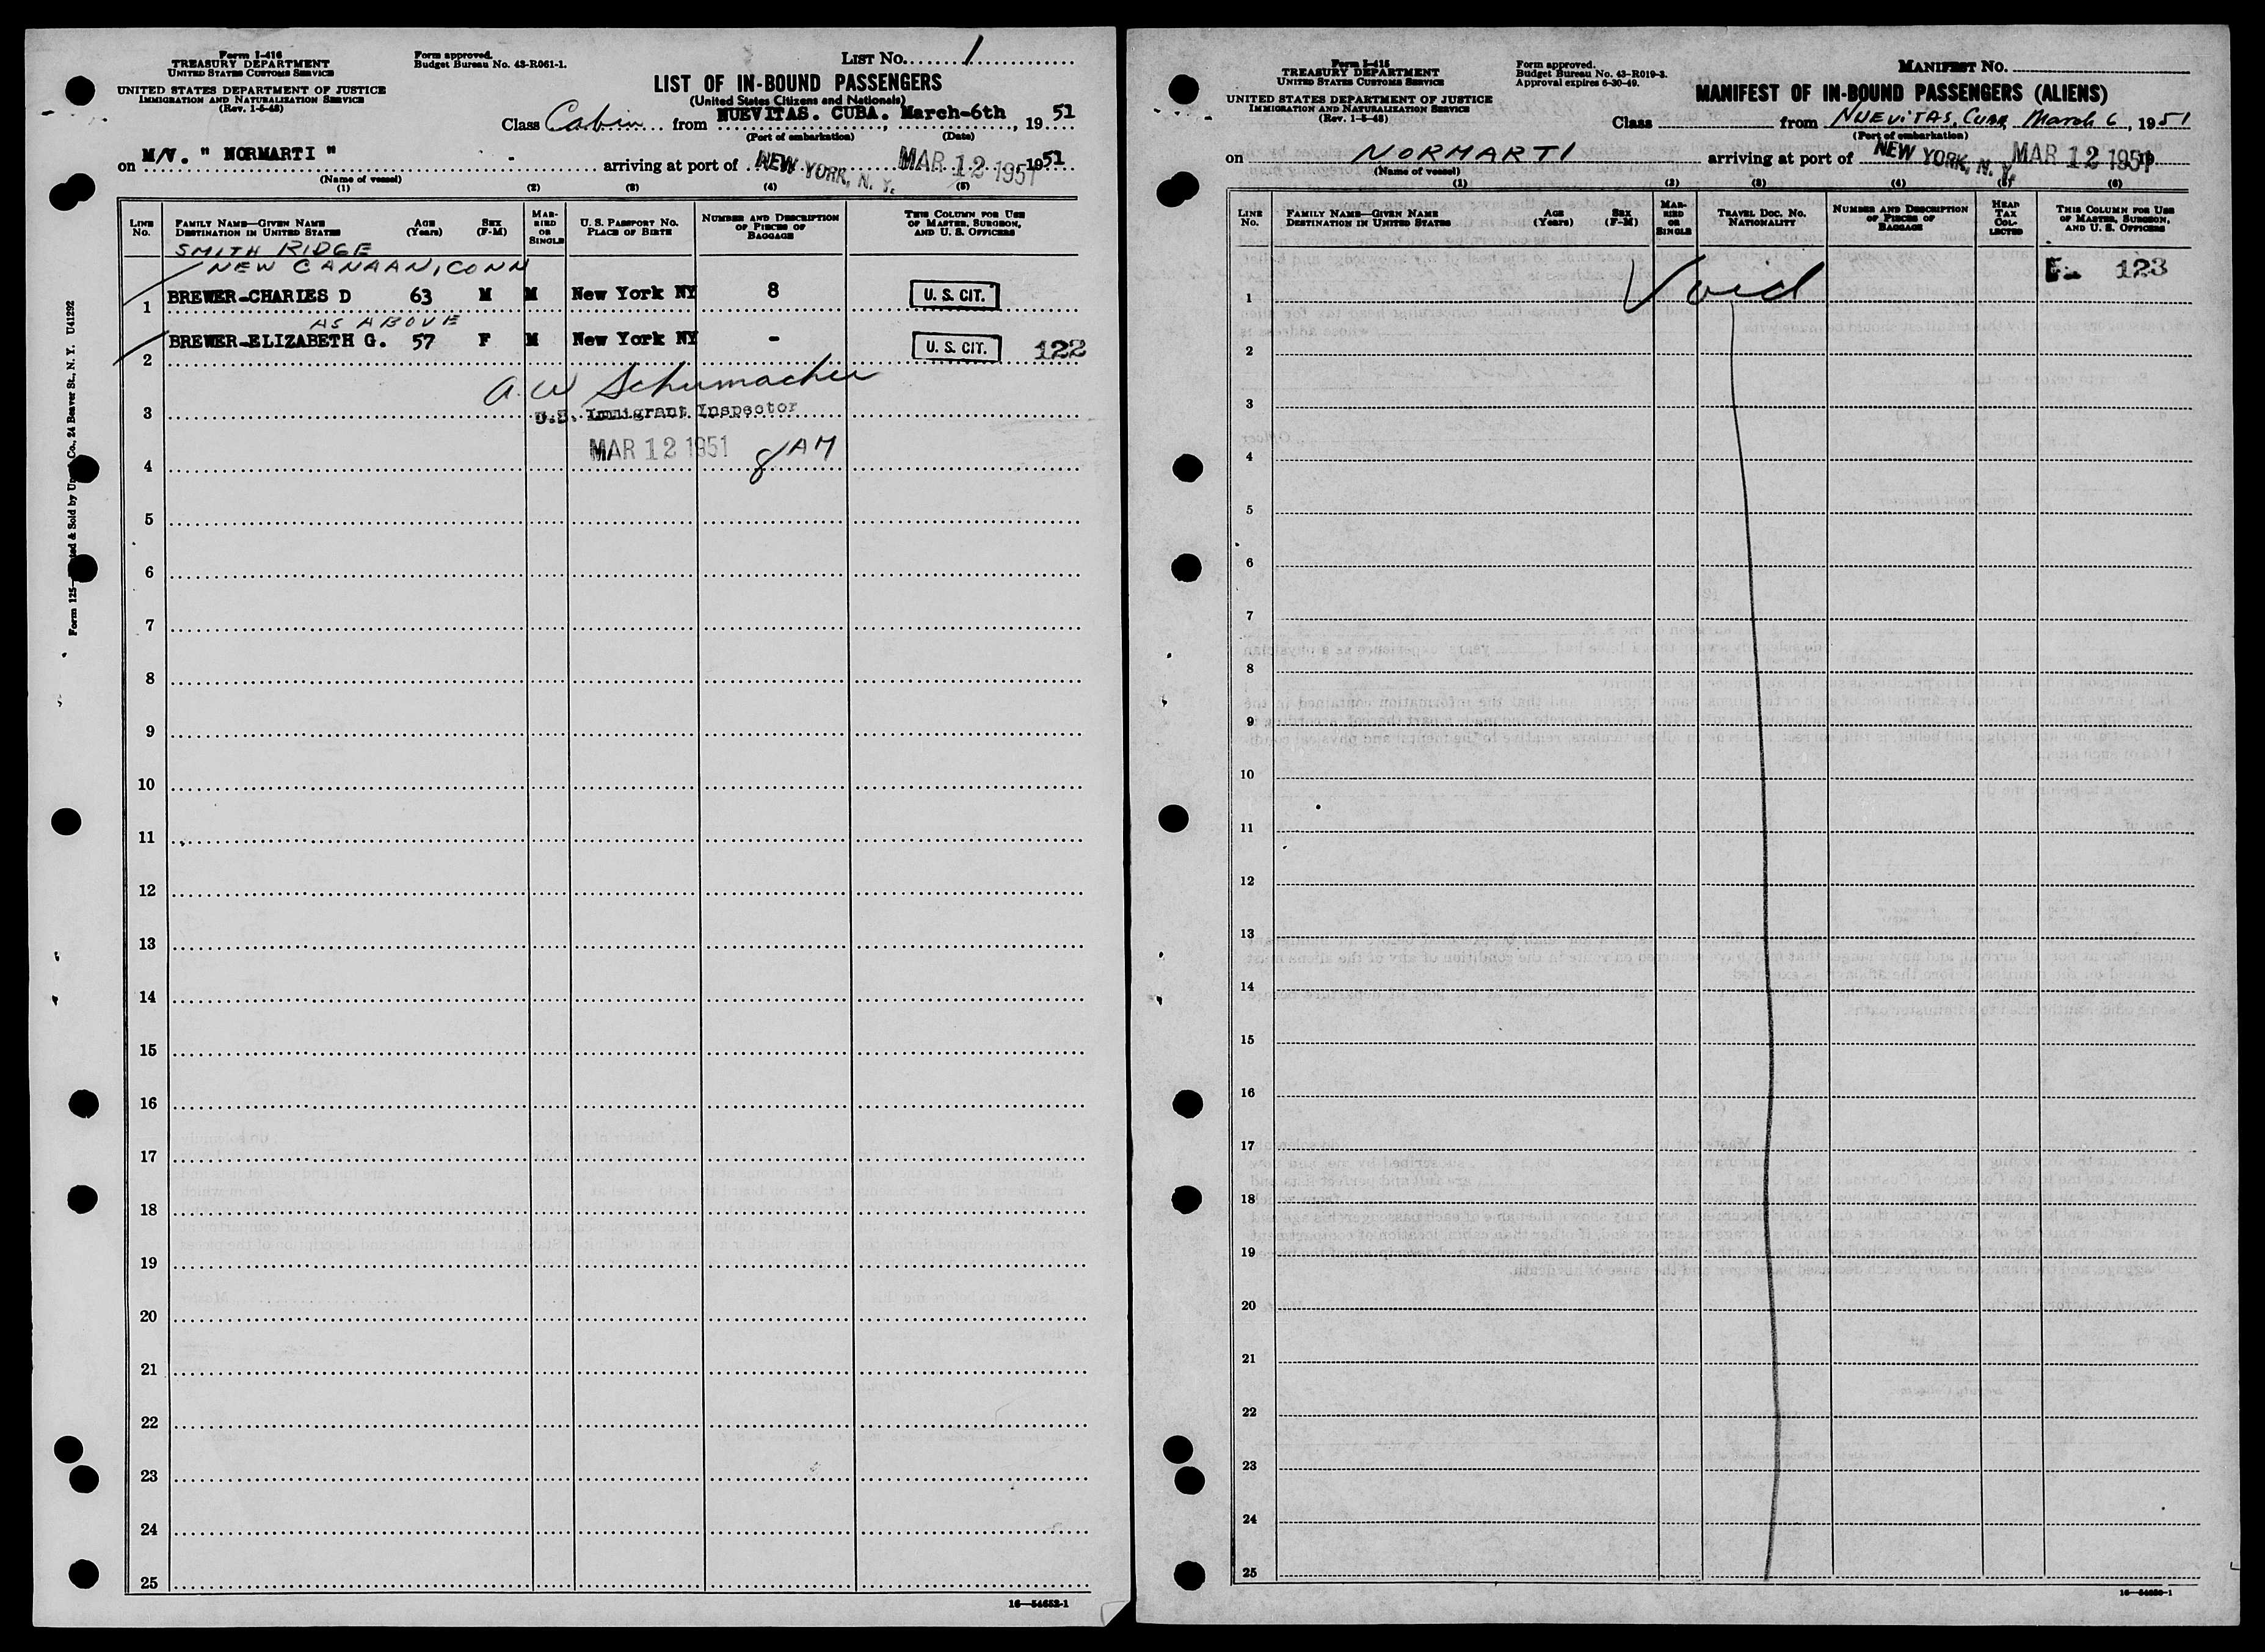 Form I-416
TREASURY DEPARTMENT
UNITED STATES CUSTOMS SERVICE
UNITED STATES DEPARTMENT OF JUSTICE
IMMIGRATION AND NATURALIZATION SERVICE
(Rev. 1-5-48)
Form approved.
Budget Bureau No. 43-R061-1.
LIST No. 1
LIST OF IN-BOUND PASSENGERS
(United States Citizens and Nationals)
Class Cabin from NUEVITAS. CUBA. March-6th, 1951
(Port of embarkation) (Date)
on M/V. " NORMARTI " arriving at port of NEW YORK, N. Y. MAR 12 1951 1951
(Name of vessel)
(1) (2) (3) (4) (5)
LINE No.
FAMILY NAME—GIVEN NAME
DESTINATION IN UNITED STATES
AGE (Years)
SEX (F-M)
MARRIED OR SINGLE
U. S. PASSPORT No.
PLACE OF BIRTH
NUMBER AND DESCRIPTION OF PIECES OF BAGGAGE
THIS COLUMN FOR USE OF MASTER, SURGEON, AND U. S. OFFICERS
SMITH RIDGE
NEW CANAAN, CONN
1 BREWER-CHARLES D 63 M M New York NY 8 U. S. CIT.
AS ABOVE
2 BREWER-ELIZABETH G. 57 F M New York NY - U. S. CIT. 122
A. W Schumacher
3 U.S. Immigrant Inspector
4 MAR 12 1951 8 AM
5
6
7
8
9
10
11
12
13
14
15
16
17
18
19
20
21
22
23
24
25
16—54652-1
Co., 24 Beaver St., N. Y. U41292
Form 125
Form I-415
TREASURY DEPARTMENT
UNITED STATES CUSTOMS SERVICE
UNITED STATES DEPARTMENT OF JUSTICE
IMMIGRATION AND NATURALIZATION SERVICE
(Rev. 1-5-48)
Form approved.
Budget Bureau No. 43-R019-3.
Approval expires 6-30-49.
MANIFEST No.
MANIFEST OF IN-BOUND PASSENGERS (ALIENS)
Class from NUEVITAS, CUBA March 6, 1951
(Port of embarkation)
on NORMARTI arriving at port of NEW YORK, N. Y. MAR 12 1951
(Name of vessel)
(1) (2) (3) (4) (5) (6)
LINE No.
FAMILY NAME—GIVEN NAME
DESTINATION IN UNITED STATES
AGE (Years)
SEX (F-M)
MARRIED OR SINGLE
TRAVEL DOC. No.
NATIONALITY
NUMBER AND DESCRIPTION OF PIECES OF BAGGAGE
HEAD TAX COLLECTED
THIS COLUMN FOR USE OF MASTER, SURGEON, AND U. S. OFFICERS
1 Void 123
2
3
4
5
6
7
8
9
10
11
12
13
14
15
16
17
18
19
20
21
22
23
24
25